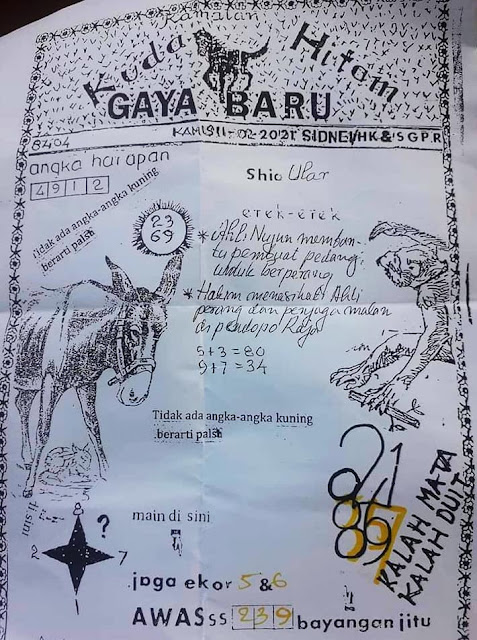 Ramalan
Kuda Hitam
GAYA BARU
KAMIS 11-02-2021 SIDNEI/HK & SGPR
8404
angka harapan
4912
Shio Ular
Tidak ada angka-angka kuning
berarti palsu
23
69
erek-erek
* Ahli Nujum memban-
tu pembuat pedang
untuk berperang
* Hakim menasihati Ahli
perang dan penjaga malam
di pendopo Raja
5+3=80
9+7=34
Tidak ada angka-angka kuning
berarti palsu
21
KALAH MATA
KALAH DUIT
8
?
2
7
1
main di sini
jaga ekor 5 & 6
AWASss 239 bayangan jitu